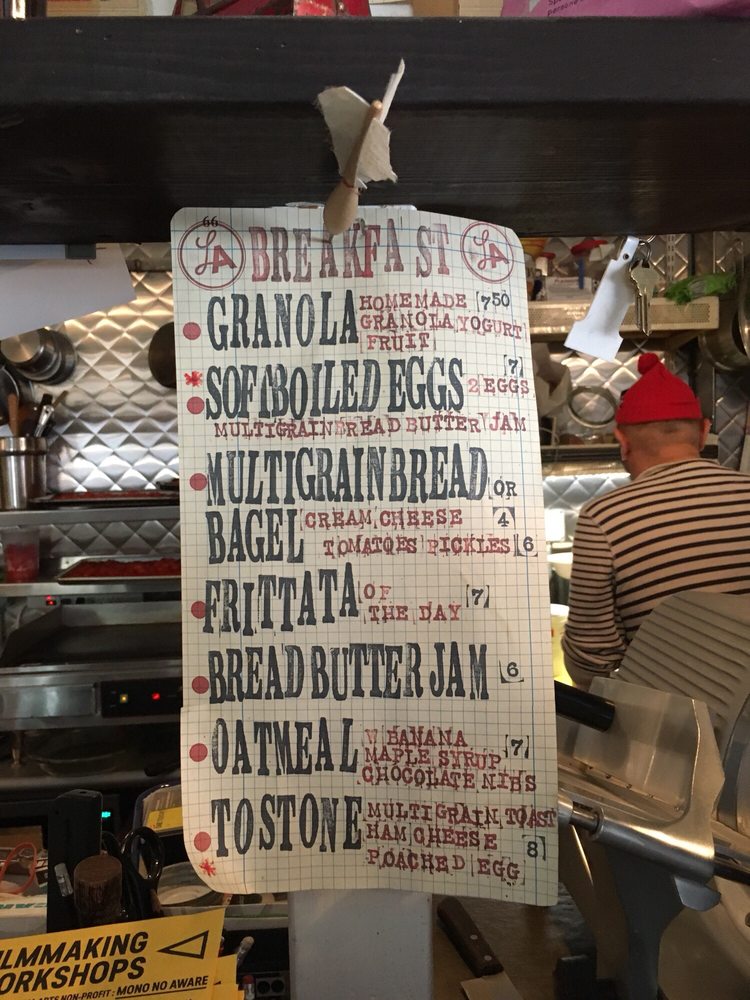 66
LA BREAKFAST LA
GRANOLA HOMEMADE 7 50
GRANOLA YOGURT
FRUIT
SOFTBOILED EGGS 7
2 EGGS
MULTIGRAIN BREAD BUTTER JAM
MULTIGRAIN BREAD OR
BAGEL CREAM CHEESE 4
TOMATOES PICKLES 6
FRITTATA OF 7
THE DAY
BREAD BUTTER JAM 6
OATMEAL W BANANA 7
MAPLE SYRUP
CHOCOLATE NIBS
TOSTONE MULTIGRAIN TOAST
HAM CHEESE 8
POACHED EGG
ILMMAKING
ORKSHOPS
ARTS NON-PROFIT: MONO NO AWARE